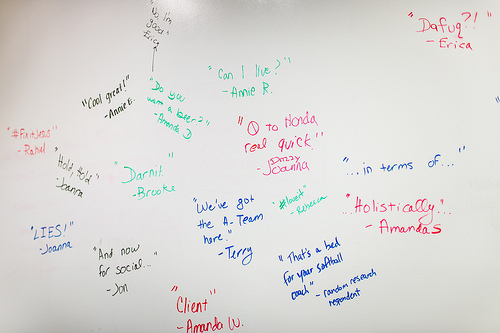 "No I'm
good"
Erica
"Dafuq?!"
- Erica
"Can I live?"
- Annie R.
"Cool great!"
- Annie E.
"Do you
want a beer?"
- Amanda D
to Honda
real quick."
- Joanna
- Rahul
"Hold, Hold"
- Joanna
"Darnit."
- Brooke
"...in terms of..."
"We've got
the A-Team
here."
- Terry
"#loveit"
- Rebecca
"...Holistically..."
- Amanda S
"LIES!"
- Joanna
"And now
for social..."
- Jon
"That's a bed
for your softball
coach"
- random research
respondent
"Client"
- Amanda W.